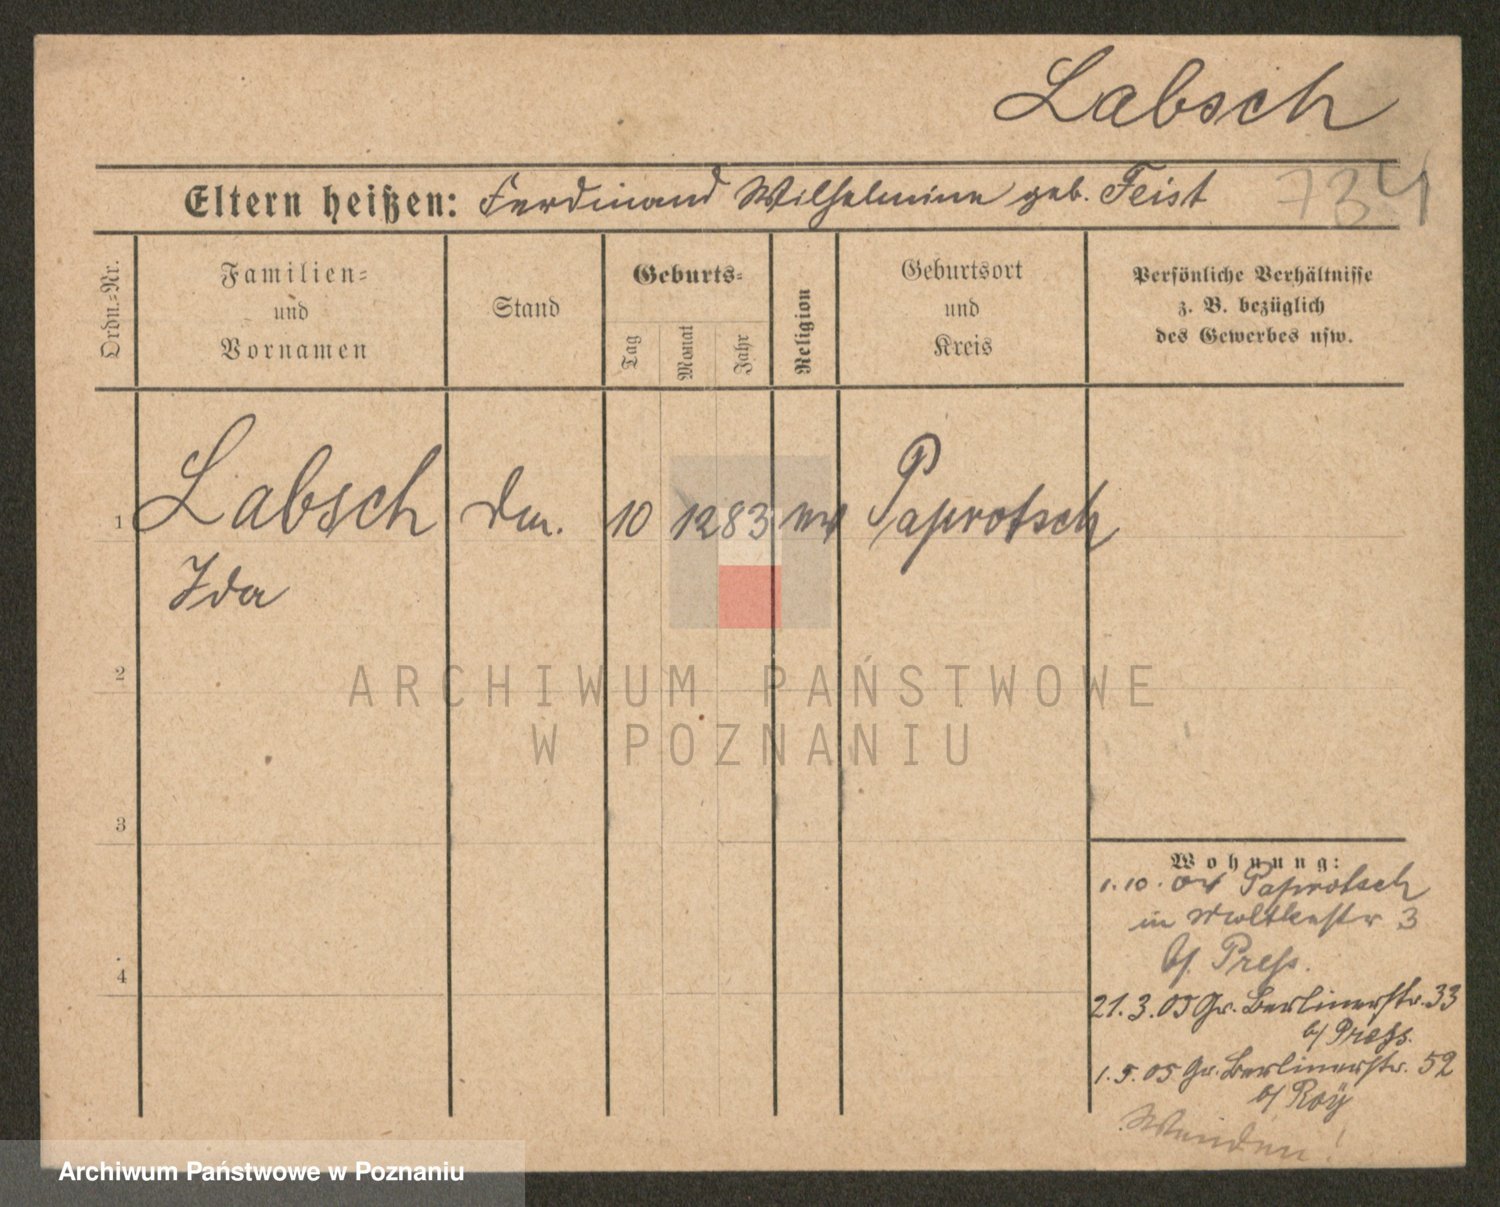 Labsch
Eltern heißen: Ferdinand Wilhelmine geb. Feist
734
Ordn.=Nr.
Familien=
und
Vornamen
Stand
Geburts=
Tag
Monat
Jahr
Religion
Geburtsort
und
Kreis
Persönliche Verhältnisse
z. B. bezüglich
des Gewerbes usw.
1
Labsch
10
12
83
Paprotsch
Ida
2
ARCHIWUM PAŃSTWOWE
W POZNANIU
3
4
Wohnung:
1.10.04 Paprotsch
in Moltkestr 3
b/ Press.
21.3.05 Gr. Berlinerstr. 33
b/ Press.
1.5.05 Gr. Berlinerstr. 52
b/ Roÿ
Wenden!
Archiwum Państwowe w Poznaniu